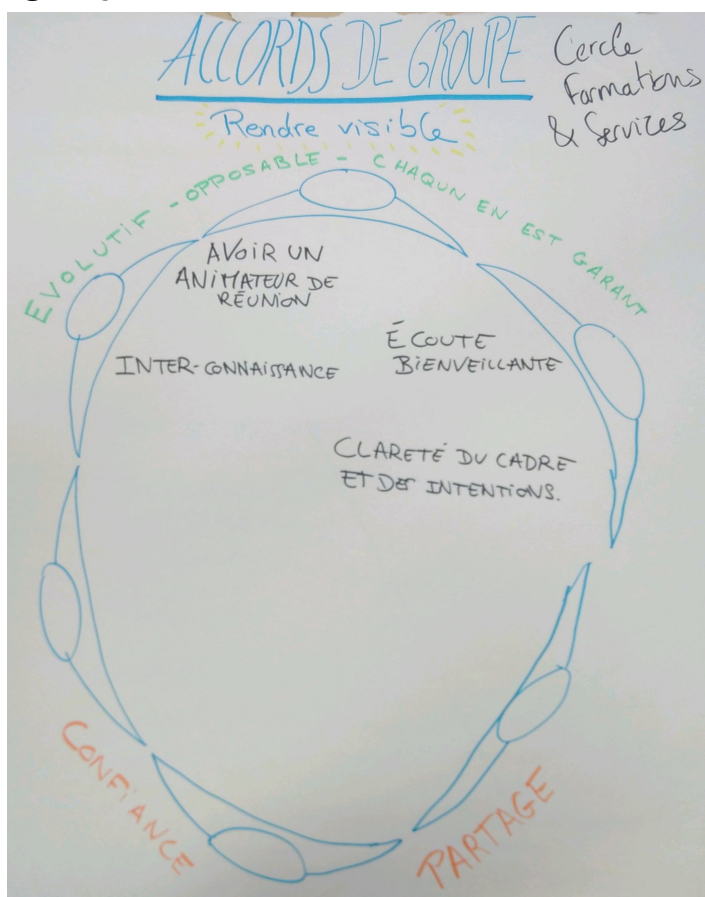 ACCORDS DE GROUPE
Cercle
Formations
& Services
Rendre visible
EVOLUTIF - OPPOSABLE - CHAQUN EN EST GARANT
AVOIR UN
ANIMATEUR DE
RÉUNION
ÉCOUTE
BIENVEILLANTE
INTER-CONNAISSANCE
CLARETÉ DU CADRE
ET DES INTENTIONS.
CONFIANCE
PARTAGE